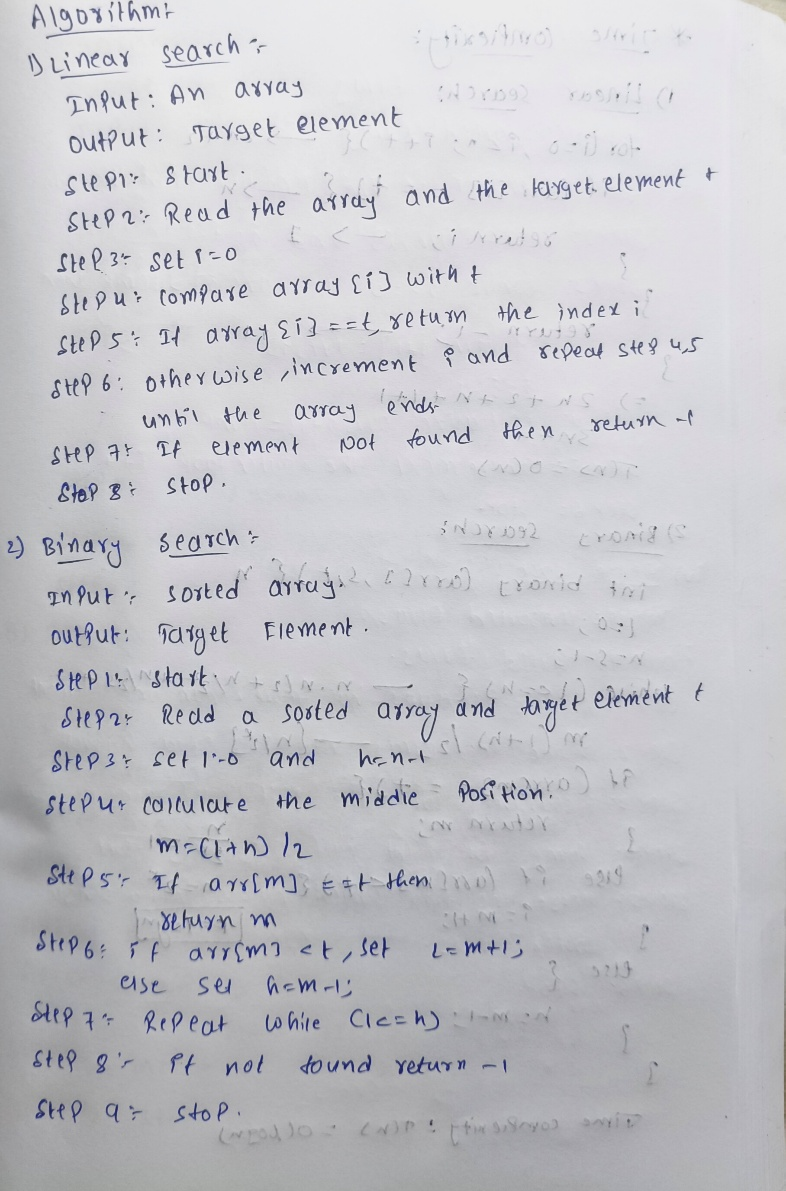 Algorithm:-
1) Linear search :-
Input : An array
Output : Target element
Step1:- Start.
Step 2:- Read the array and the target element t
Step 3:- set i=0
Step 4:- compare array [i] with t
Step 5:- If array [i] ==t, return the index i
Step 6: otherwise, increment i and repeat step 4,5
until the array ends.
Step 7:- If element Not found then return -1
Step 8:- Stop.
2) Binary search :-
Input :- sorted array.
Output: Target Element.
Step 1:- Start.
Step 2:- Read a sorted array and target element t
Step 3:- set l=0 and h=n-1
Step 4:- calculate the middle Position.
m=(l+h) /2
Step 5:- If arr[m] ==t then
return m
Step 6: if arr[m] <t, set L=m+1;
else set h=m-1;
Step 7:- Repeat while (l<=h)
Step 8:- If not found return -1
Step 9:- Stop.